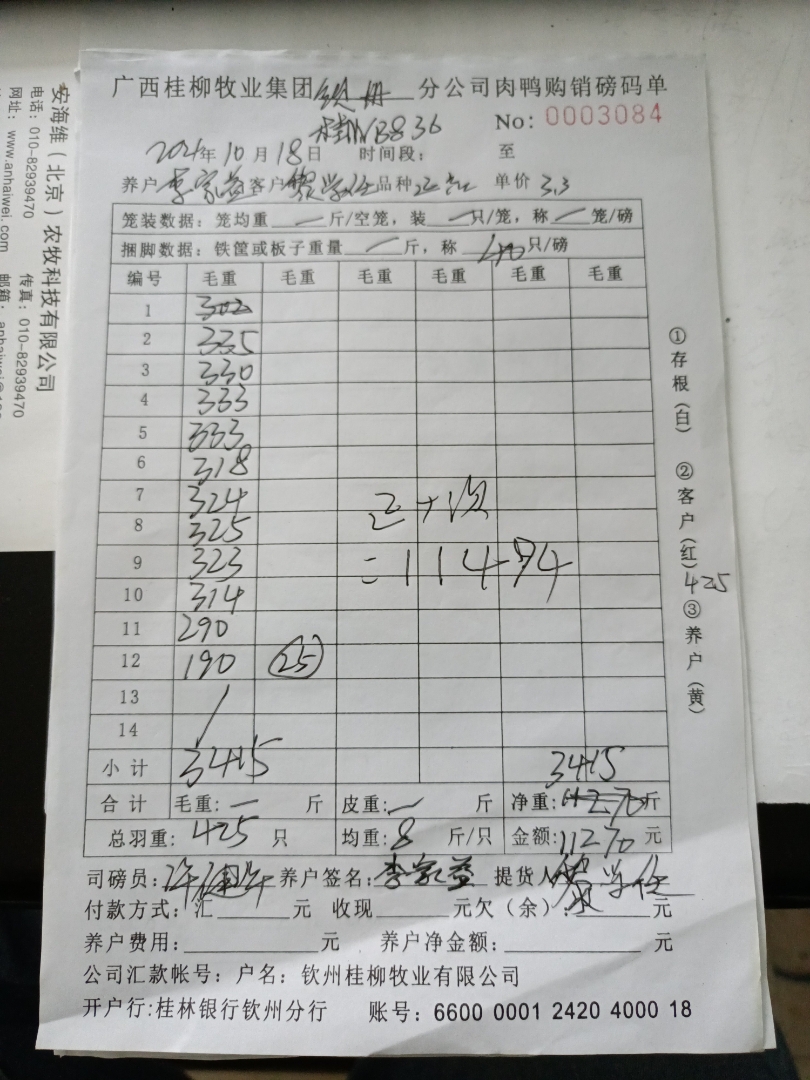 广西桂柳牧业集团 钦州 分公司肉鸭购销磅码单
B836 No: 0003084
2021年10月18日 时间段: 至
养户李家益客户 学任品种 正 单价 3.3
笼装数据: 笼均重 一 斤/空笼, 装 一 只/笼, 称 一 笼/磅
捆脚数据: 铁筐或板子重量 一 斤, 称 40 只/磅
编号 毛重 毛重 毛重 毛重 毛重 毛重
1 302
2 335
3 330
4 333
5 333
6 318
7 324
8 325
9 323
10 314
11 290
12 190 25
13
14
十次
=11494
小计 3415 3415
合计 毛重: 一 斤 皮重: 一 斤 净重: 斤
总羽重: 425 只 均重: 8 斤/只 金额: 11270 元
司磅员: 养户签名: 李家益 提货人 学任
付款方式: 汇 元 收现 元欠(余): 元
养户费用: 元 养户净金额: 元
公司汇款帐号: 户名: 钦州桂柳牧业有限公司
开户行: 桂林银行钦州分行 账号: 6600 0001 2420 4000 18
①存根(白) ②客户(红) ③养户(黄)
425
安海维(北京)农牧科技有限公司
电话: 010-82939470 传真: 010-82939470
网址: www.anhaiwei.com 邮箱: